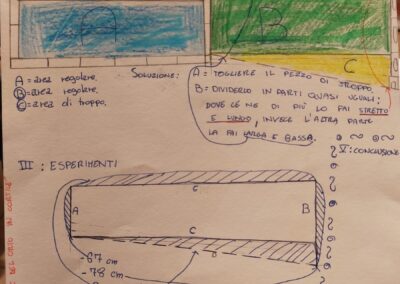 A
B
C
A = area regolare,
B = area regolare,
C = area di troppo,
SOLUZIONE:
A = TOGLIERE IL PEZZO DI TROPPO,
B = DIVIDERLO IN PARTI QUASI UGUALI;
DOVE CE NE DI PIÙ LO FAI STRETTO
E LUNGO, INVECE L'ALTRA PARTE
LA FAI LARGA E BASSA.
V: CONCLUSIONE
III: ESPERIMENTI
C
A
B
C
-67 cm
-78 cm
DEL ORTO IN CORTILE